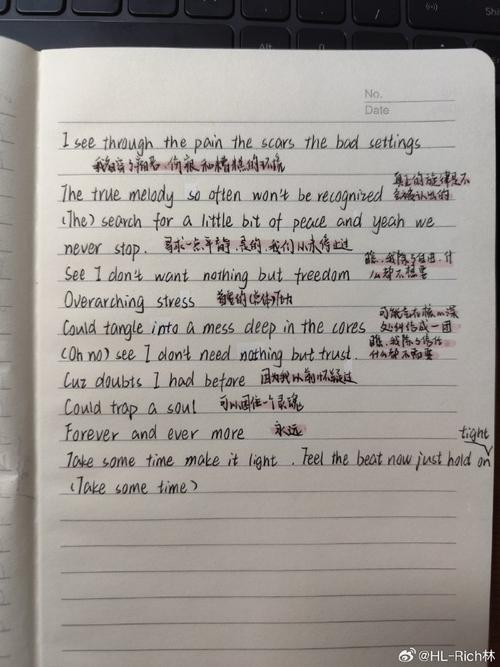 Alt
Shi
No.
Date
I see through the pain the scars the bad settings
我看穿了痛苦、伤痕和糟糕的环境
The true melody so often won't be recognized 真正的旋律是不
会被认出的
(The) search for a little bit of peace and yeah we
never stop. 寻求一点平静,是的,我们从未停止过
See I don't want nothing but freedom 瞧,我除了自由,什
么都不想要
Overarching stress 首要的(总体)压力
Could tangle into a mess deep in the cores 可能会在核心深
处纠结成一团
(Oh no) see I don't need nothing but trust. 瞧,我除了信任
什么都不需要
Cuz doubts I had before 因为我以前怀疑过
Could trap a soul 可以困住一个灵魂
Forever and ever more 永远
tight
Take some time make it light. Feel the beat now just hold on
(Take some time)
@HL-Rich林